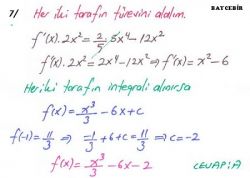 BAYCEBİR
7/ Her iki tarafın türevini alalım.
f'(x).2x² = 2/5 . 5x⁴ - 12x²
f'(x).2x² = 2x⁴ - 12x² ⇒ f'(x) = x² - 6
Her iki tarafın integrali alınırsa
f(x) = x³/3 - 6x + c
f(-1) = 11/3 ⇒ -1/3 + 6 + c = 11/3 ⇒ c = -2
f(x) = x³/3 - 6x - 2 CEVAP:A